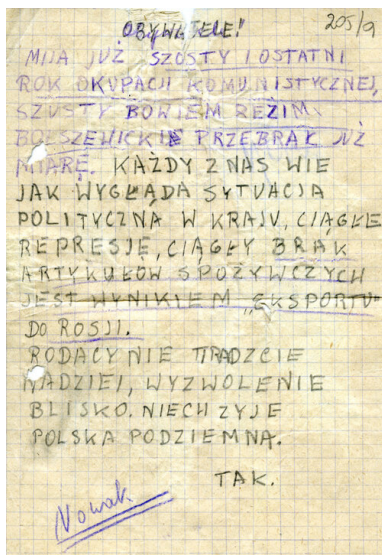 205/9
OBYWATELE!"
MIJA JUŻ SZOSTY I OSTATNI
ROK OKUPACJI KOMUNISTYCZNEJ,
SZUSTY BOWIEM REŻIM
BOLSZEWICKI PRZEBRAŁ JUŻ
MIARĘ. KAŻDY Z NAS WIE
JAK WYGŁĄDA SYTUACJA
POLITYCZNA W KRAJU, CIĄGŁE
REPRESJĘ, CIĄGŁY BRAK
ARTYKUŁÓW SPOŻYWCZYCH
JEST WYNIKIEM „EKSPORTU"
DO ROSJI.
RODACY NIE TRADZCIE
NADZIEI, WYZWOLENIE
BLISKO. NIECH ZYJE
POLSKA PODZIEMNA.
TAK.
Nowak